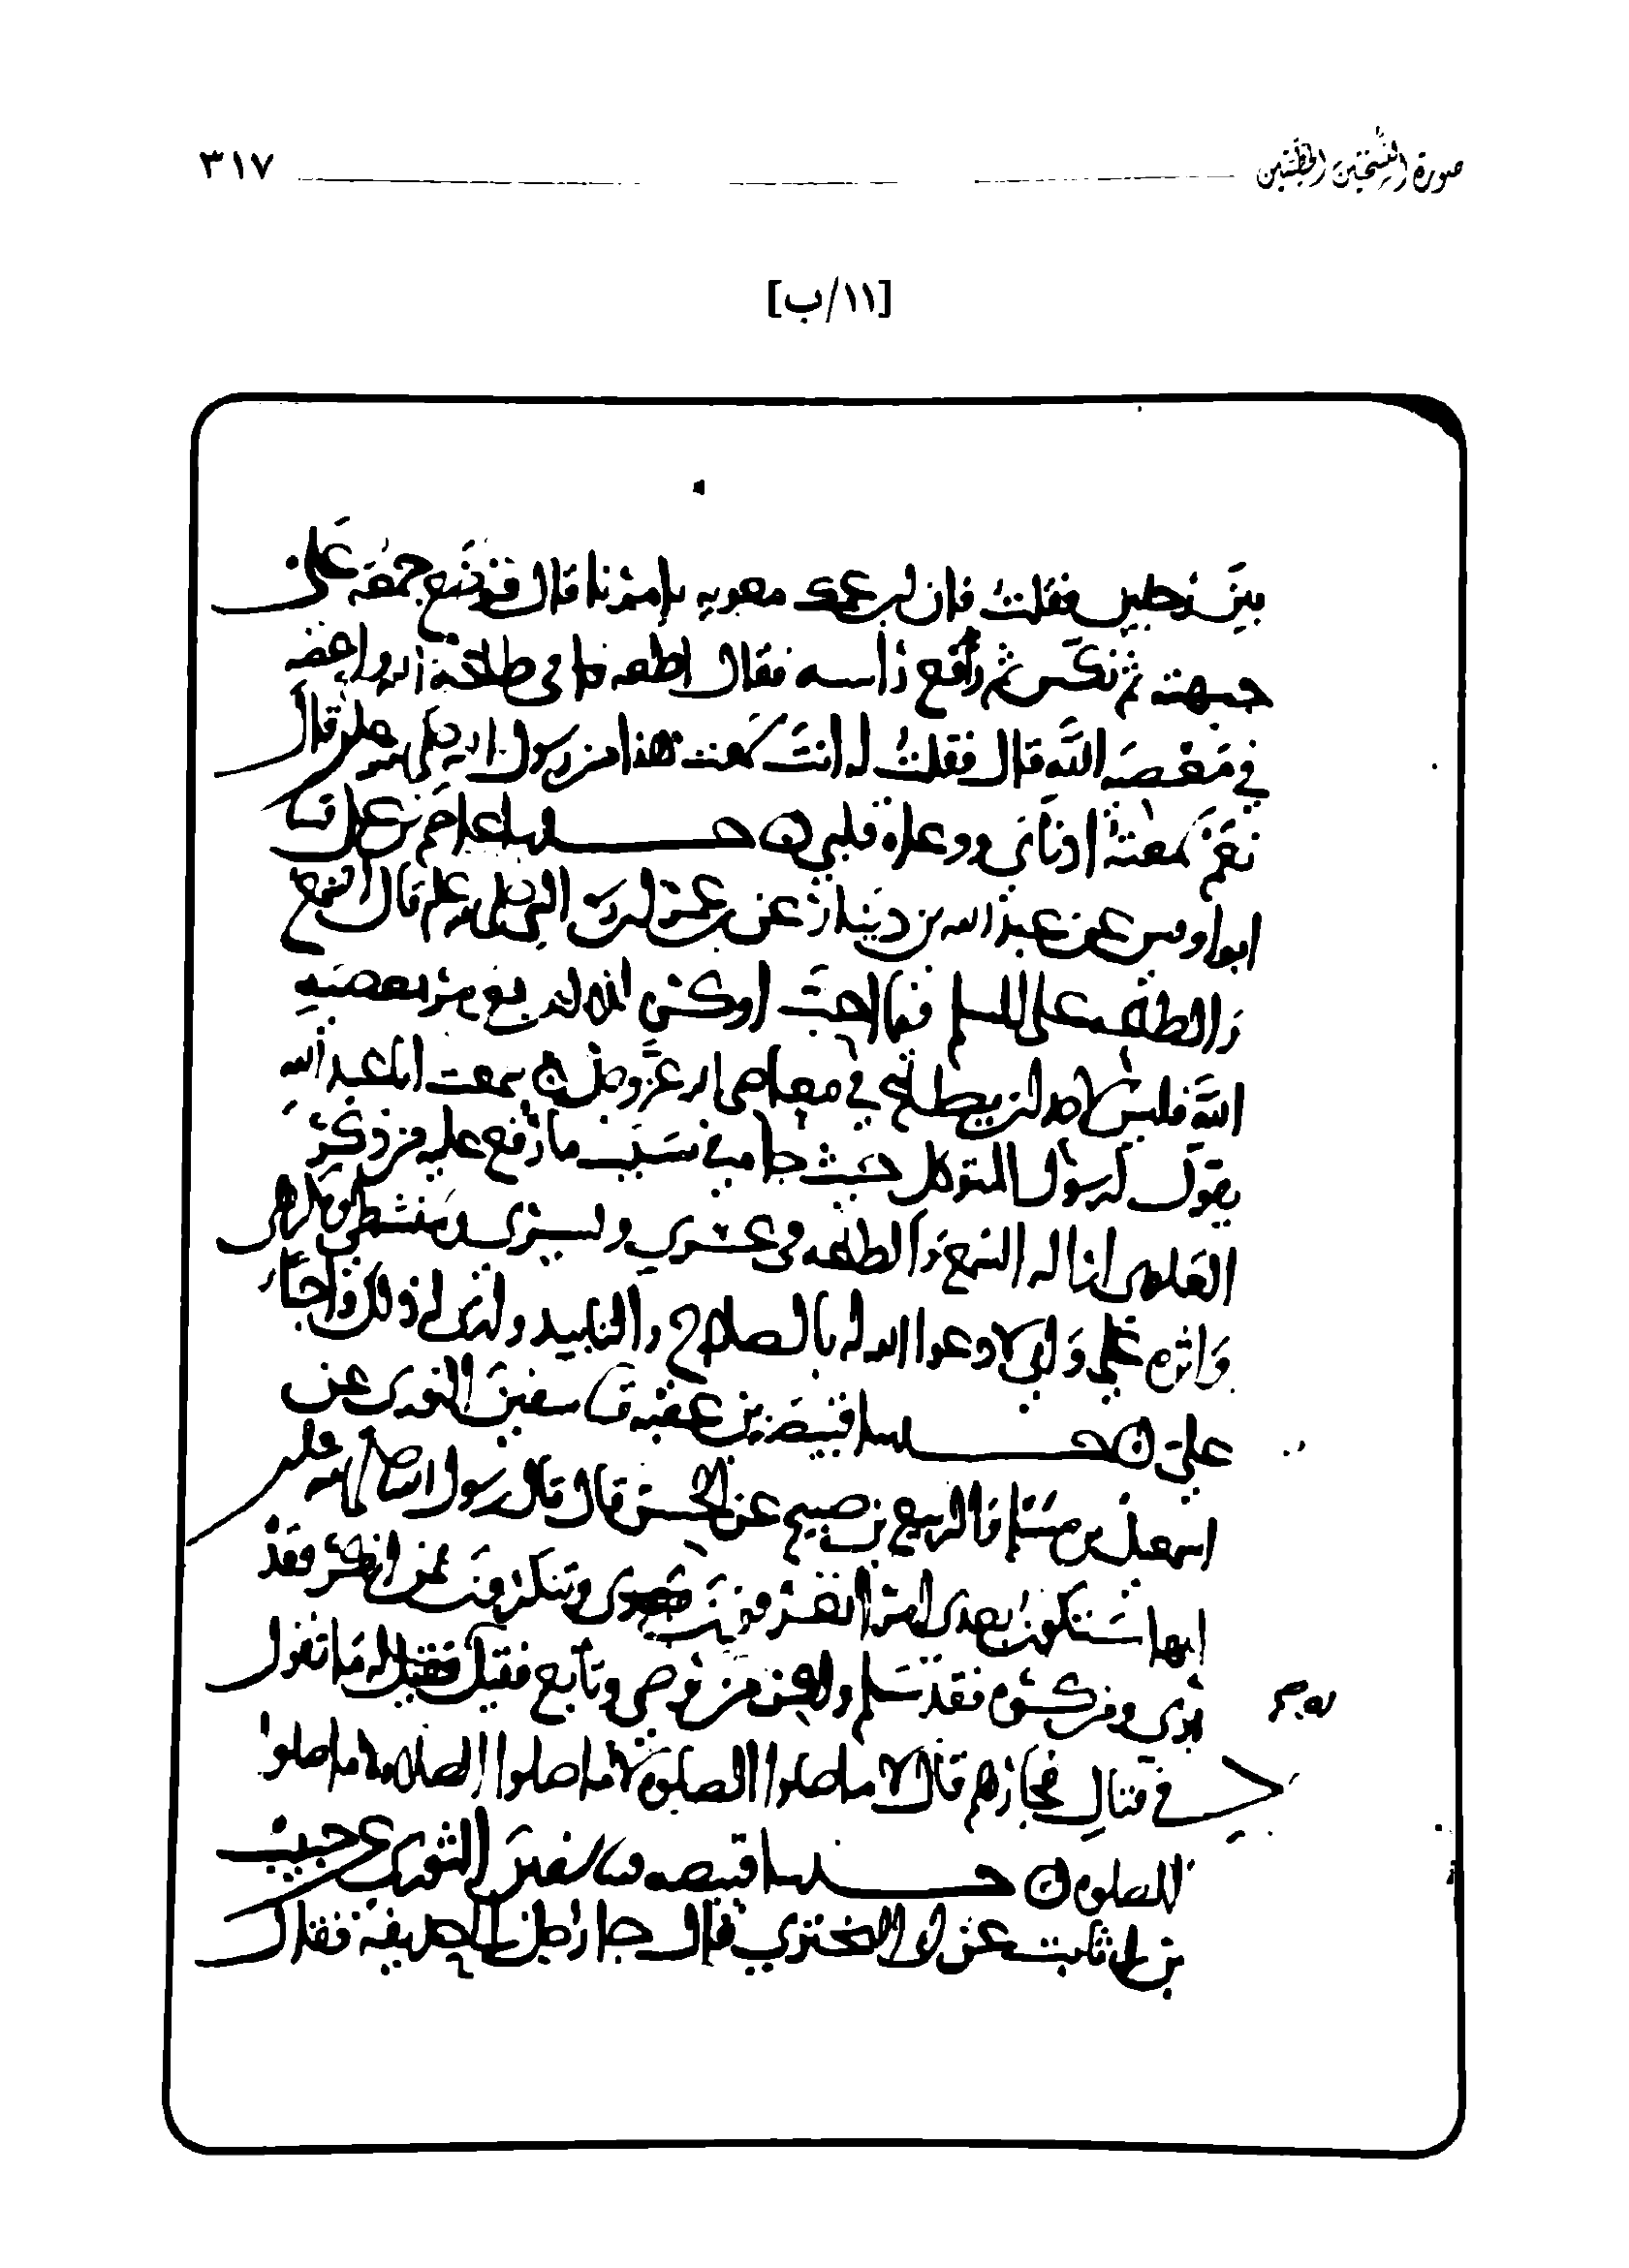 صورة النسختين الخطيتين ٣١٧
[١١/ب]
بين رجلين فقلت فان ابن عمك معويه يامرنا قال فوضع جمعه على
جبهته ثم نكس ثم رفع راسه فقال اطعه في طاعة الله واعصه
في معصيه الله قال فقلت له انت سمعت هذا من رسول الله صلى الله عليه قال
نعم سمعته اذناي ووعاه قلبي حدثنا عاصم بن على
ابو اويس عن عبد الله بن دينار عن بن عمر ان النبي صلى الله عليه وسلم قال السمع
والطاعة على المسلم فيما احب او كره الله يومر بمعصيه
الله فليس لاحد ان يطاع في معاصى الله عز وجل سمعت ابا عبد الله
يقول لرسول المتوكل حيث جا في سبب ما رفع عليه من ذكر
العلوى انا له السمع والطاعة في عسري ويسري ومنشطي ومكرهي
واثره علي واني لادعوا الله له بالصلاح والتاييد واني لى ذلك واجبا
علي حدثنا قبيصه بن عقبه سفين الثورى عن
اسمعيل بن مسلم نا الربيع بن صبيح عن الحسن قال قال رسول الله صلى الله عليه
انها ستكون بعدى امرا تعرفون وتنكرون فمن انكر فقد
برى ومن كره فقد سلم ولكن من رضي وتابع فقيل له ما تقول
في قتال فجارهم قال لا ما صلوا الصلوه لا ما صلوا الصلاه لا ما صلوا
الصلوه حدثنا قبيصه سفين الثورى عن حبيب
بن ابى ثابت عن ابى البختري قال جا رجل الى حذيفة فقال